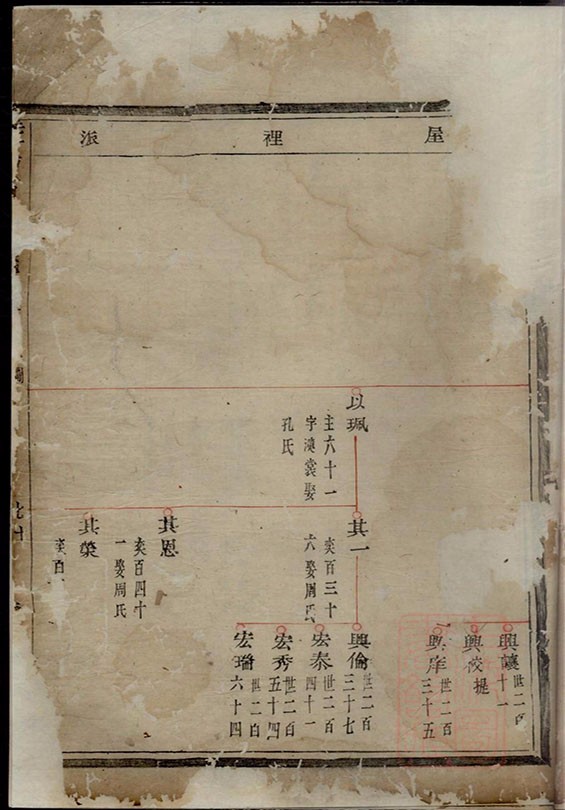 屋裡派
興讓
世二百
十一
興校
提
興庠
世二百
三十五
以珮
主六十一
字漢裳娶
孔氏
其一
奕百三十
六娶周氏
興倫
世二百
三十七
宏泰
世二百
四十一
宏秀
世二百
五十四
宏瑞
世二百
六十四
其恩
奕百四十
一娶周氏
其榮
奕百